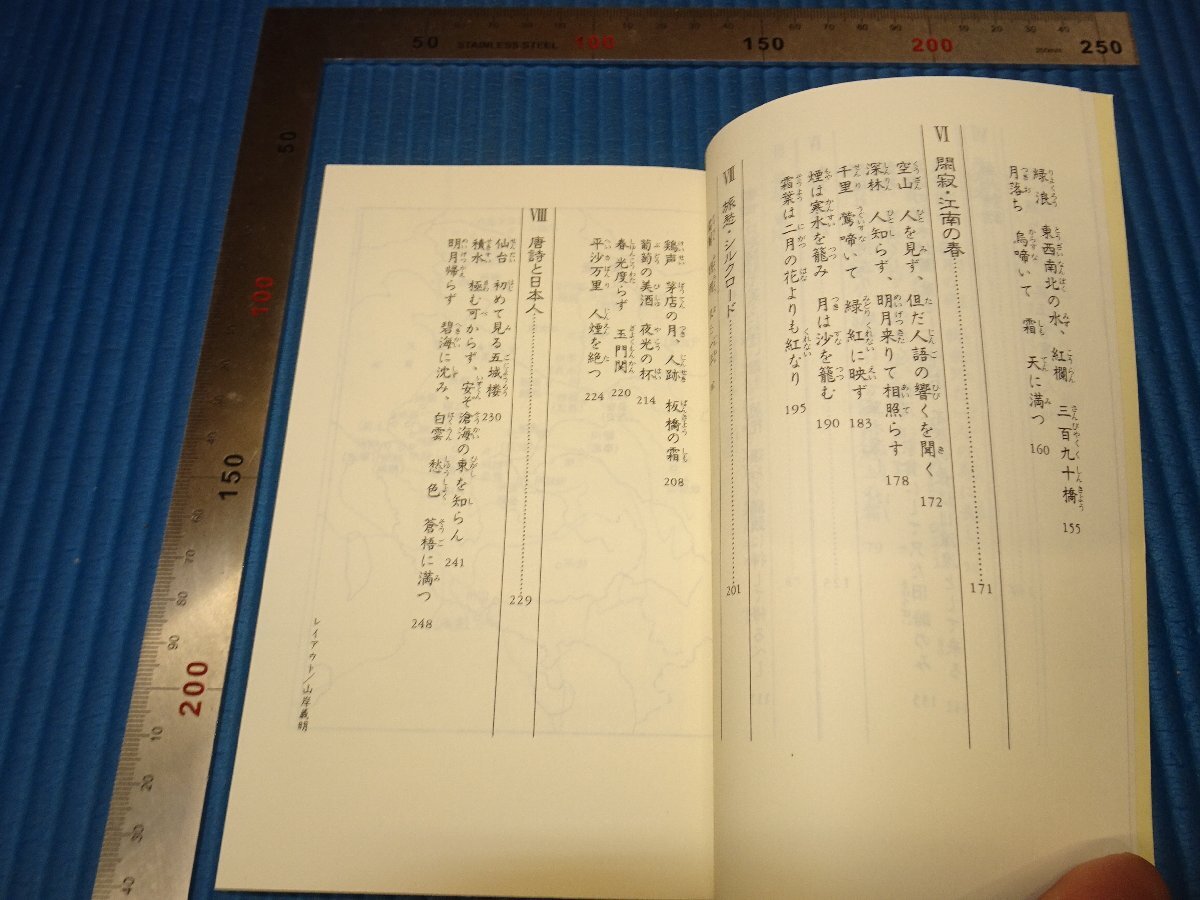 緑浪 東西南北の水、紅欄 三百九十橋 155
月落ち 烏啼いて 霜 天に満つ 160
Ⅵ 閑寂・江南の春 171
空山 人を見ず、但だ人語の響くを聞く 172
深林 人知らず、明月来りて相照らす 178
千里 鶯啼いて 緑 紅に映ず 183
煙は寒水を籠み 月は沙を籠む 190
霜葉は二月の花よりも紅なり 195
Ⅶ 旅愁・シルクロード 201
鶏声 茅店の月、人跡 板橋の霜 208
葡萄の美酒 夜光の杯 214
春光度らず 玉門関 220
平沙万里 人煙を絶つ 224
Ⅷ 唐詩と日本人 229
仙台 初めて見る五城楼 230
積水 極む可からず、安ぞ滄海の東を知らん 241
明月帰らず 碧海に沈み、白雲 愁色 蒼梧に満つ 248
レイアウト/山岸義明
50 STAINLESS STEEL 100 150 200 250
50
100
150
200